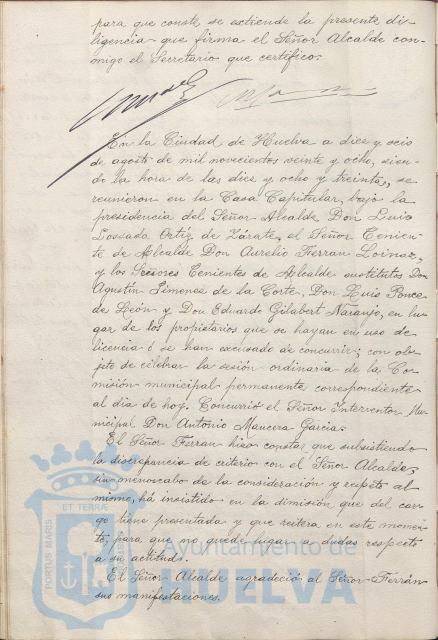 para que conste, se extiende la presente di-
ligencia que firma el Señor Alcalde con-
migo el Secretario que certifico.
En la Ciudad de Huelva a diez y seis
de agosto de mil novecientos veinte y ocho, sien-
do la hora de las diez y ocho y treinta, se
reunieron en la Casa Capitular, bajo la
presidencia del Señor Alcalde Don Luis
Lossada Ortiz de Zárate, el Señor Tenien-
te de Alcalde Don Aurelio Ferran Loinaz,
y los Señores Tenientes de Alcalde sustitutos Don
Agustín Jimenez de la Corte, Don Luis Ponce
de León y Don Eduardo Gilabert Naranjo, en lu-
gar de los propietarios que se hayan en uso de
licencia ó se han excusado de concurrir; con ob-
jeto de celebrar la sesión ordinaria de la Co-
misión municipal permanente correspondiente
al dia de hoy. Concurrió el Señor Interventor Mu-
nicipal Don Antonio Mancera Garcia.
El Señor Ferran hizo constar que subsistiendo
la discrepancia de criterio con el Señor Alcalde,
sin menoscabo de la consideración y respeto al
mismo, há insistido en la dimisión que del car-
go tiene presentada y que reitera en este momen-
to, para que no quede lugar a dudas respecto
a su actitud.
El Señor Alcalde agradeció al Señor Ferrán
sus manifestaciones.
PORTUS MARIS ET TERRÆ
Ayuntamiento de
HUELVA